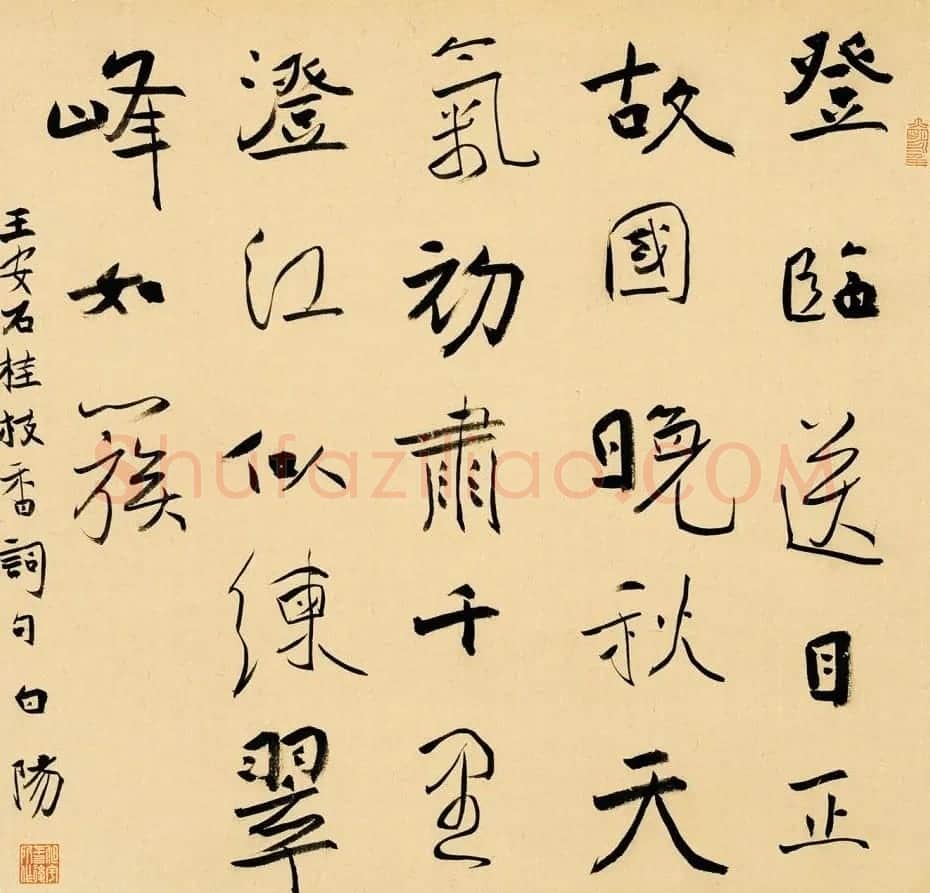 登臨送目正
故國晚秋天
氣初肅千里
澄江似練翠
峰如簇
王安石桂枝香詞句白陽
Shufaziliao.COM